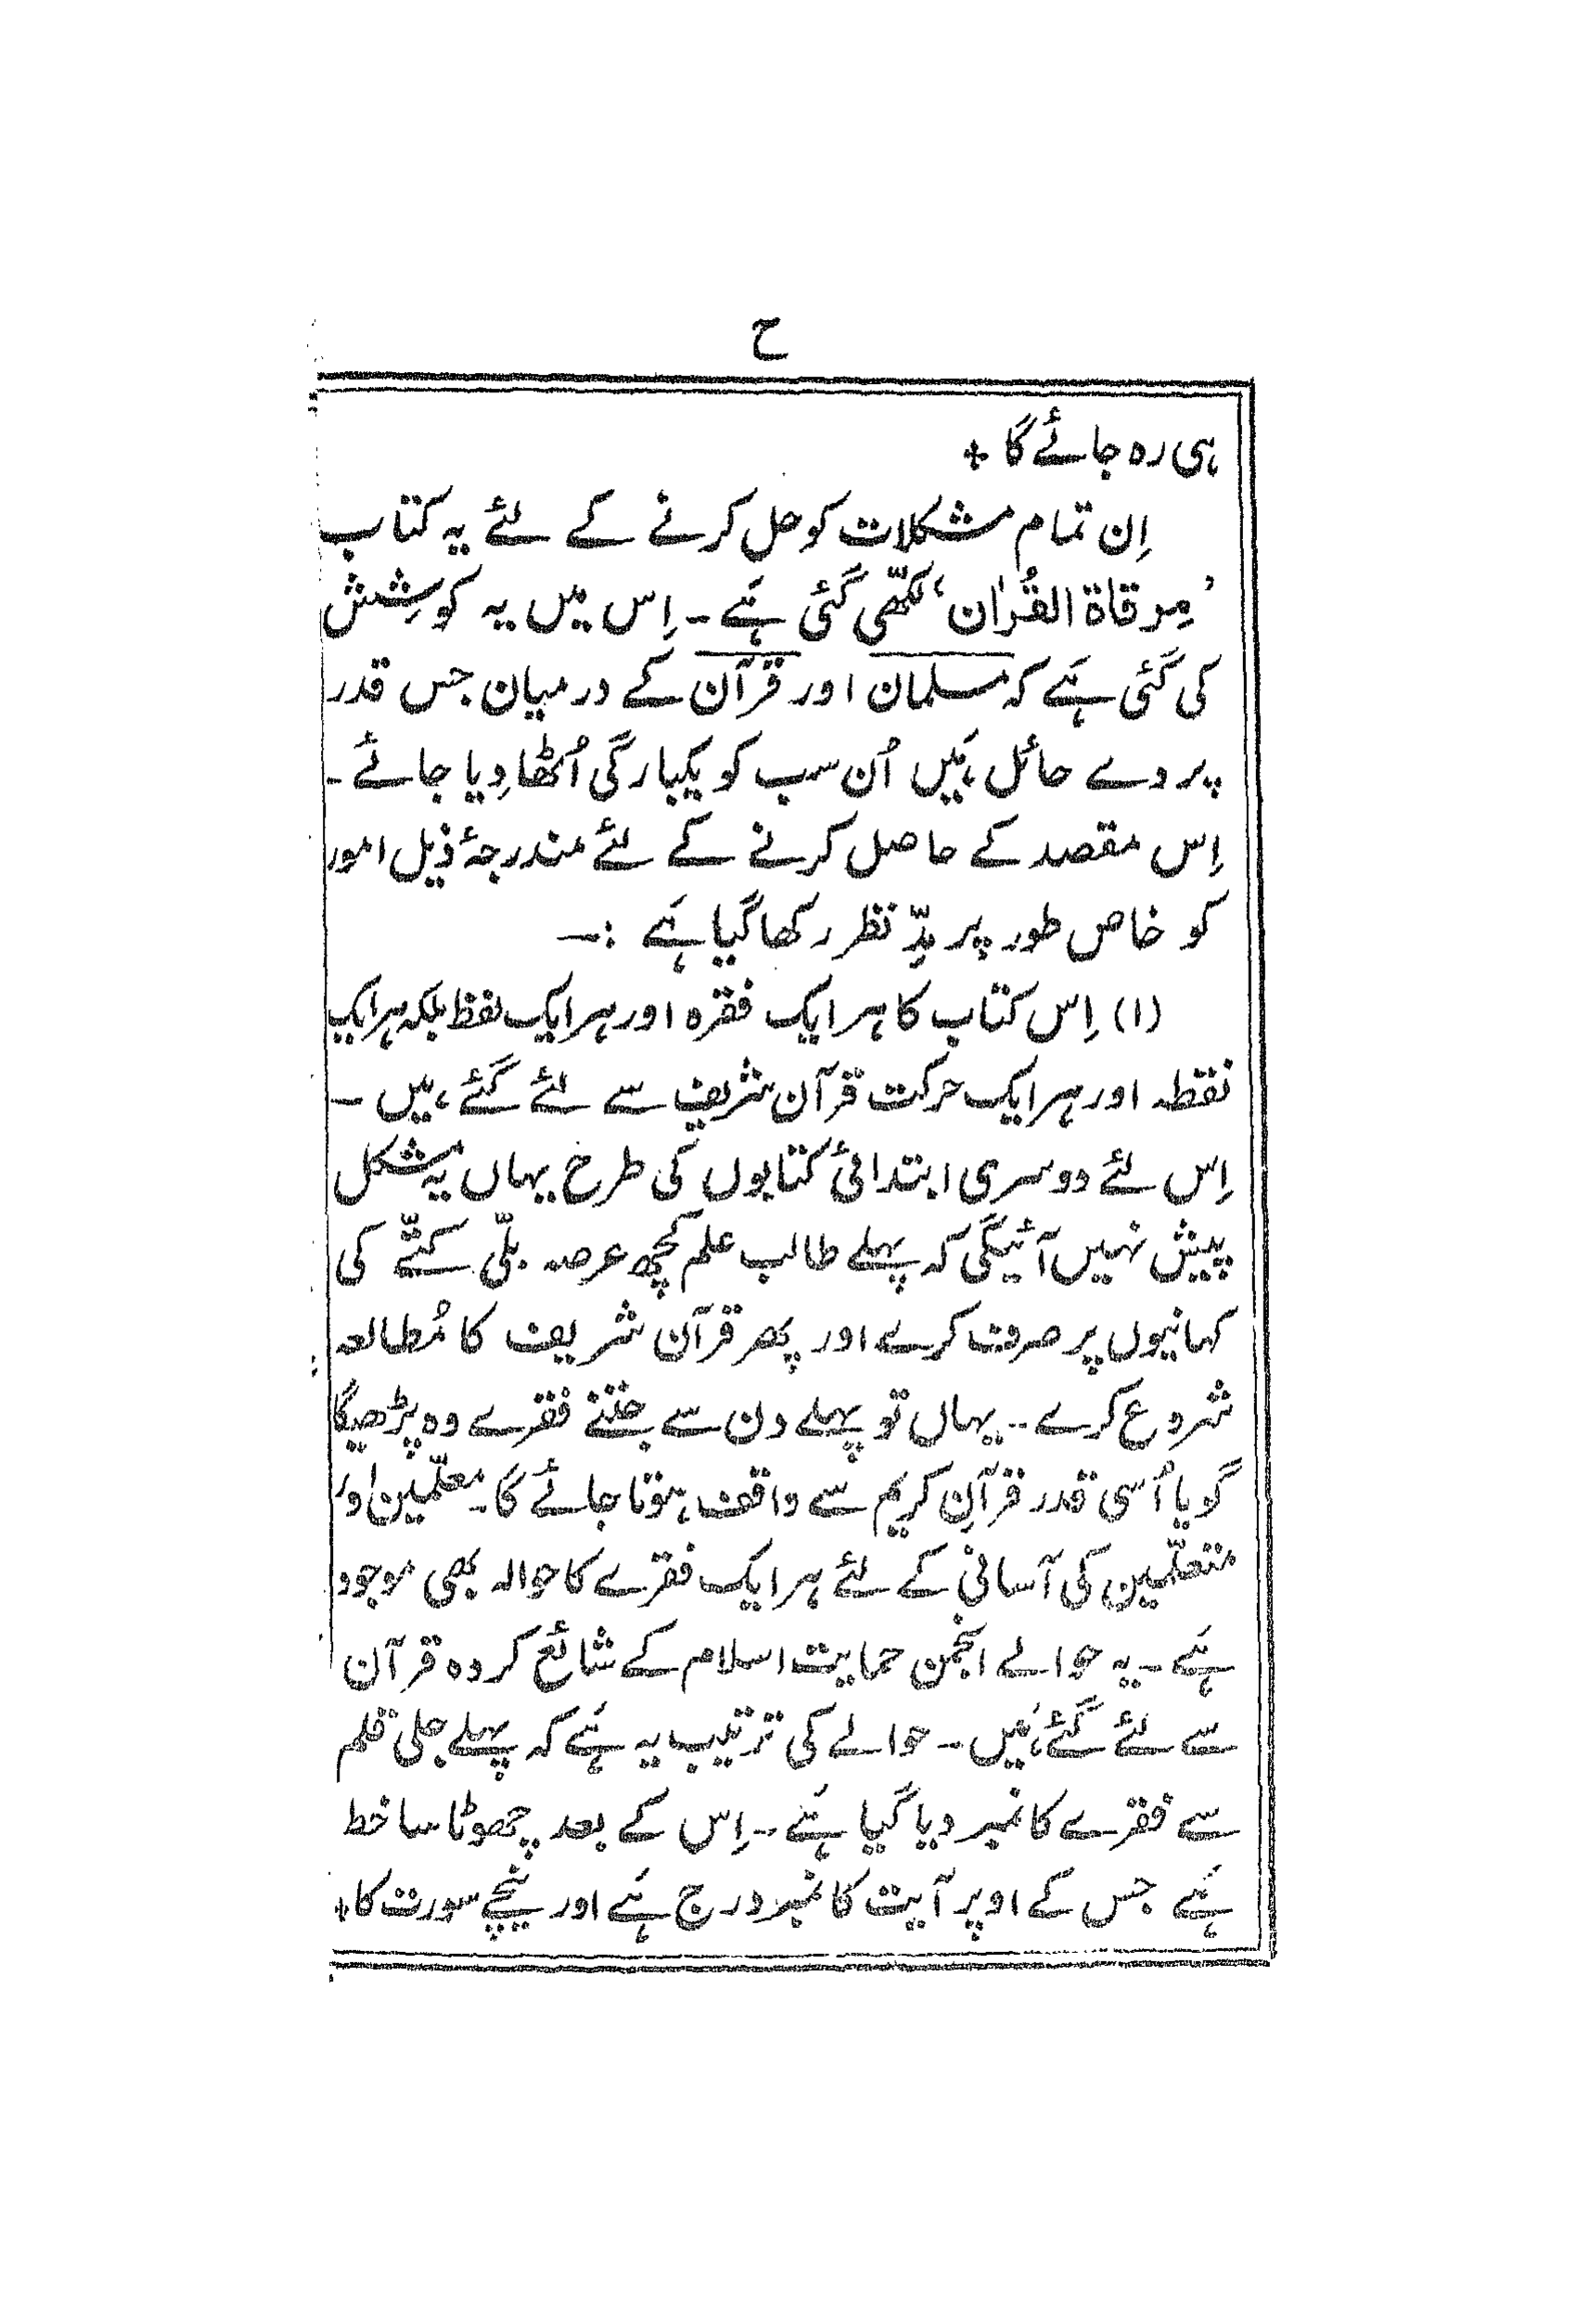 ح
ہی رہ جائے گا +
اِن تمام مشکلات کو حل کرنے کے لئے یہ کتاب
’مِرقاۃ القُراٰن‘ لکھّی گئی ہَے ۔ اِس میں یہ کوشِش
کی گئی ہَے کہ مسلمان اور قرآن کے درمیان جس قدر
پردے حائل ہَیں اُن سب کو یکبارگی اُٹھا دِیا جائے ۔
اِس مقصد کے حاصل کرنے کے لئے مندرجۂ ذیل امور
کو خاص طور پر مدِّ نظر رکھا گیا ہَے :—
(۱) اِس کتاب کا ہر ایک فقرہ اور ہر ایک لفظ بلکہ ہر ایک
نقطہ اور ہر ایک حرکت قرآن شریف سے لئے گئے ہیں ۔
اِس لئے دوسری ابتدائی کتابوں کی طرح یہاں یہ مشکل
پیش نہیں آئیگی کہ پہلے طالب علم کچھ عرصہ بلّی کتّے کی
کہانیوں پر صرف کرے اور پھر قرآن شریف کا مُطالعہ
شروع کرے ۔ یہاں تو پہلے دن سے جتنے فقرے وہ پڑھیگا
گویا اُسی قدر قرآنِ کریم سے واقف ہوتا جائے گا ۔ معلّمین اور
متعلّمین کی آسانی کے لئے ہر ایک فقرے کا حوالہ بھی موجود
ہَے ۔ یہ حوالے انجمن حمایت اسلام کے شائع کردہ قرآن
سے لئے گئے ہَیں ۔ حوالے کی ترتیب یہ ہَے کہ پہلے جلی قلم
سے فقرے کا نمبر دیا گیا ہَے ۔ اِس کے بعد چھوٹا سا خط
ہَے جس کے اوپر آیت کا نمبر درج ہَے اور نیچے سورت کا +